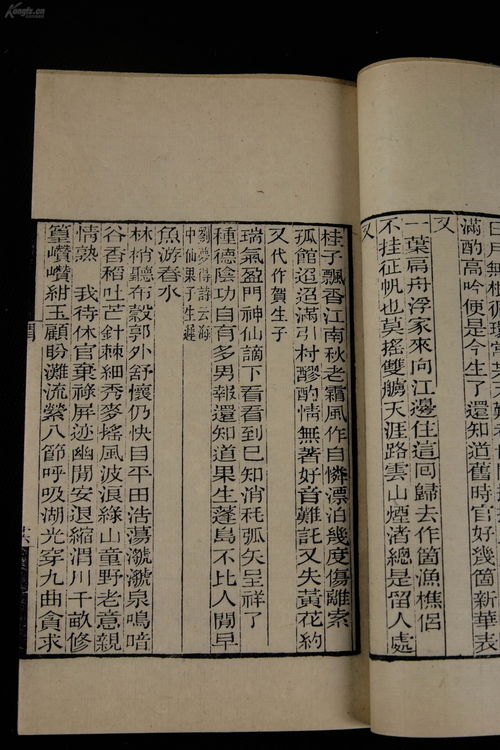 日月無根循環常若又
滿酌高吟便是今生了還知道舊時官好幾箇新華表
又
一葉扁舟浮家來向江邊住這回歸去作箇漁樵侶
不挂征帆也莫搖雙艣天涯路雲山煙渚總是留人處
又
桂子飄香江南秋老霜風作自憐漂泊幾度傷離索
孤館迢迢滿引村醪酌情無著好音難託又失黃花約
又代作賀生子
瑞氣盈門神仙謫下看看到巳知消秏弧矢呈祥了
種德陰功自有多男報還知道果生蓬島不比人間早
劉夢得詩云海
中仙果子生遲
魚游春水
林梢聽布穀郭外舒懷仍快目平田浩蕩瀲瀲泉鳴喑
谷香稻吐芒針棘細秀麥搖風波浪綠山童野老意親
情熟 我待休官棄祿屏迹幽閒安退縮渭川千畝修
篁巑巑紺玉顧盼灘流縈八節呼吸湖光穿九曲貪求